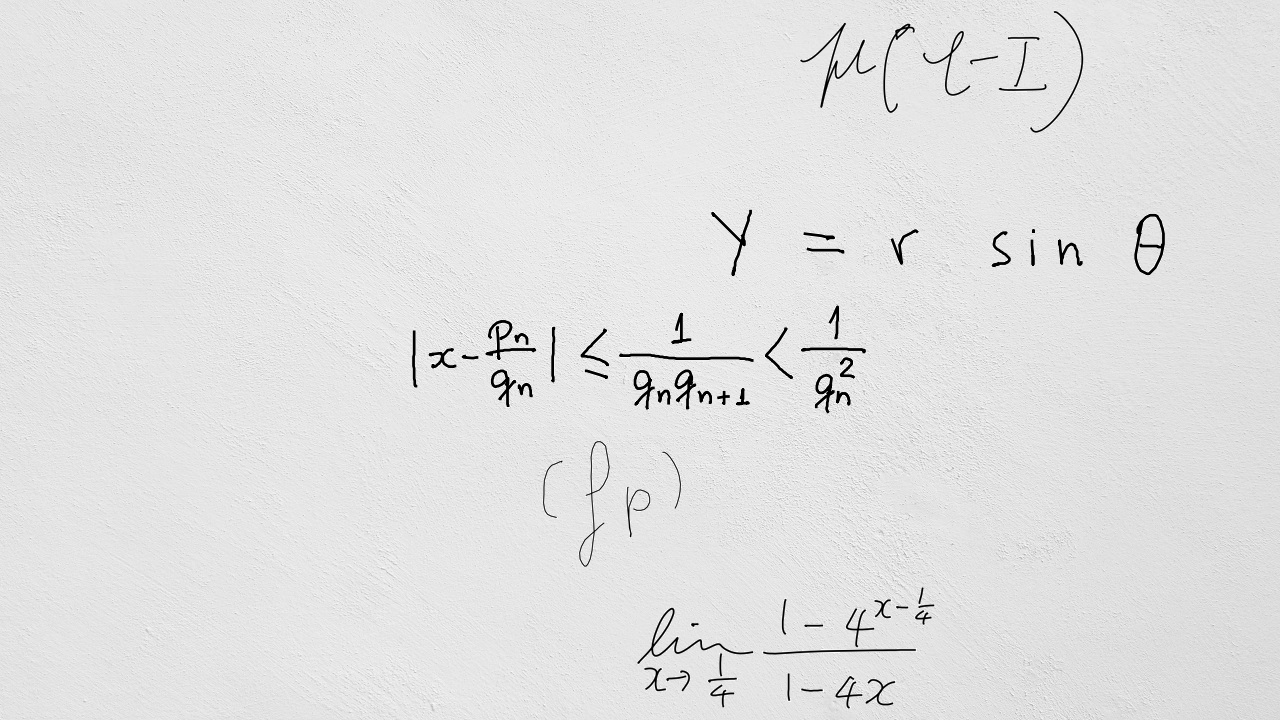 μ(t-I)
Y = r sin θ
|x - \frac{p_n}{q_n}| ≤ \frac{1}{q_n q_{n+1}} < \frac{1}{q_n^2}
(f p)
\lim_{x→\frac{1}{4}} \frac{1-4^{x-\frac{1}{4}}}{1-4x}